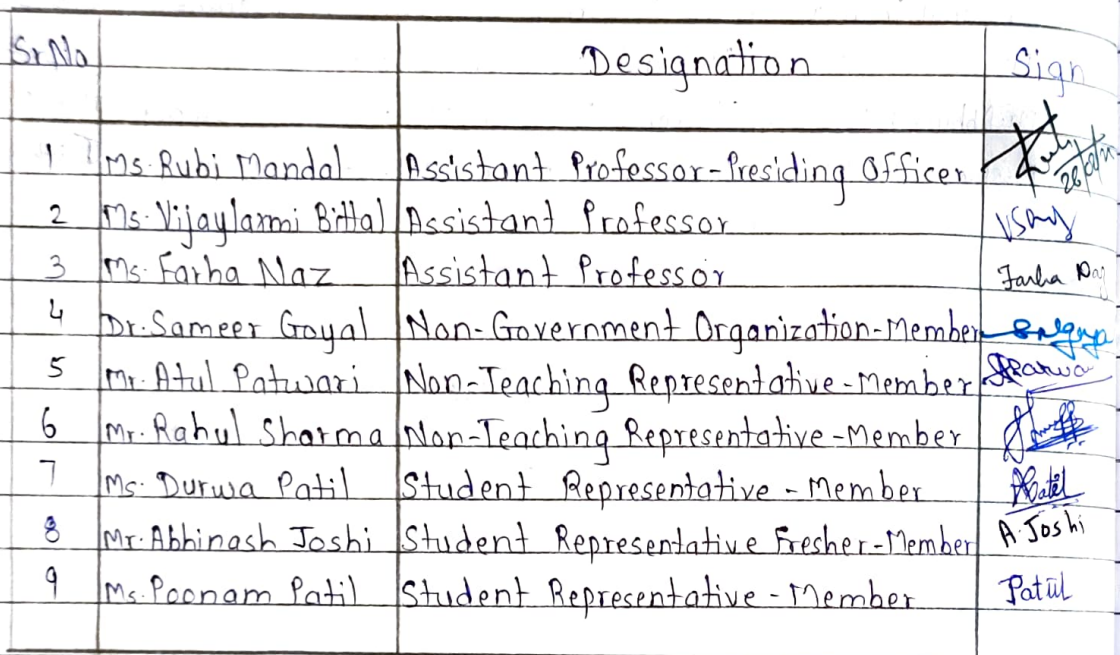 Sr No Designation Sign
1 Ms. Rubi Mandal Assistant Professor-Presiding Officer
2 Ms. Vijaylaxmi Bittal Assistant Professor
3 Ms. Farha Naz Assistant Professor Farha
4 Dr. Sameer Goyal Non-Government Organization-Member
5 Mr. Atul Patwari Non-Teaching Representative-Member
6 Mr. Rahul Sharma Non-Teaching Representative-Member
7 Ms. Durwa Patil Student Representative - Member
8 Mr. Abhinash Joshi Student Representative Fresher-Member A. Joshi
9 Ms. Poonam Patil Student Representative - Member Patil